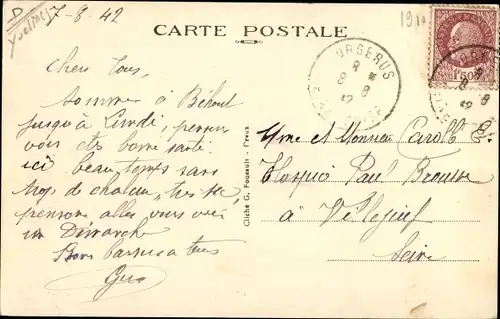 D
Yvelines
7-8-42
CARTE POSTALE
1940
ORGERUS
8
8 8
42
SEINE-ET-OISE
1F50
Chers tous,
sommes à Béhoust
jusqu'à Lundi, pensons
vous êtes bonne santé
ici beau temps sans
trop de chaleur, très sec,
pensons aller vous voir
un Dimanche
Bons baisers à tous
Cliché G. Foucault - Dreux
Mme et Monsieur
Hospice Paul Brousse
à Villejuif
Seine